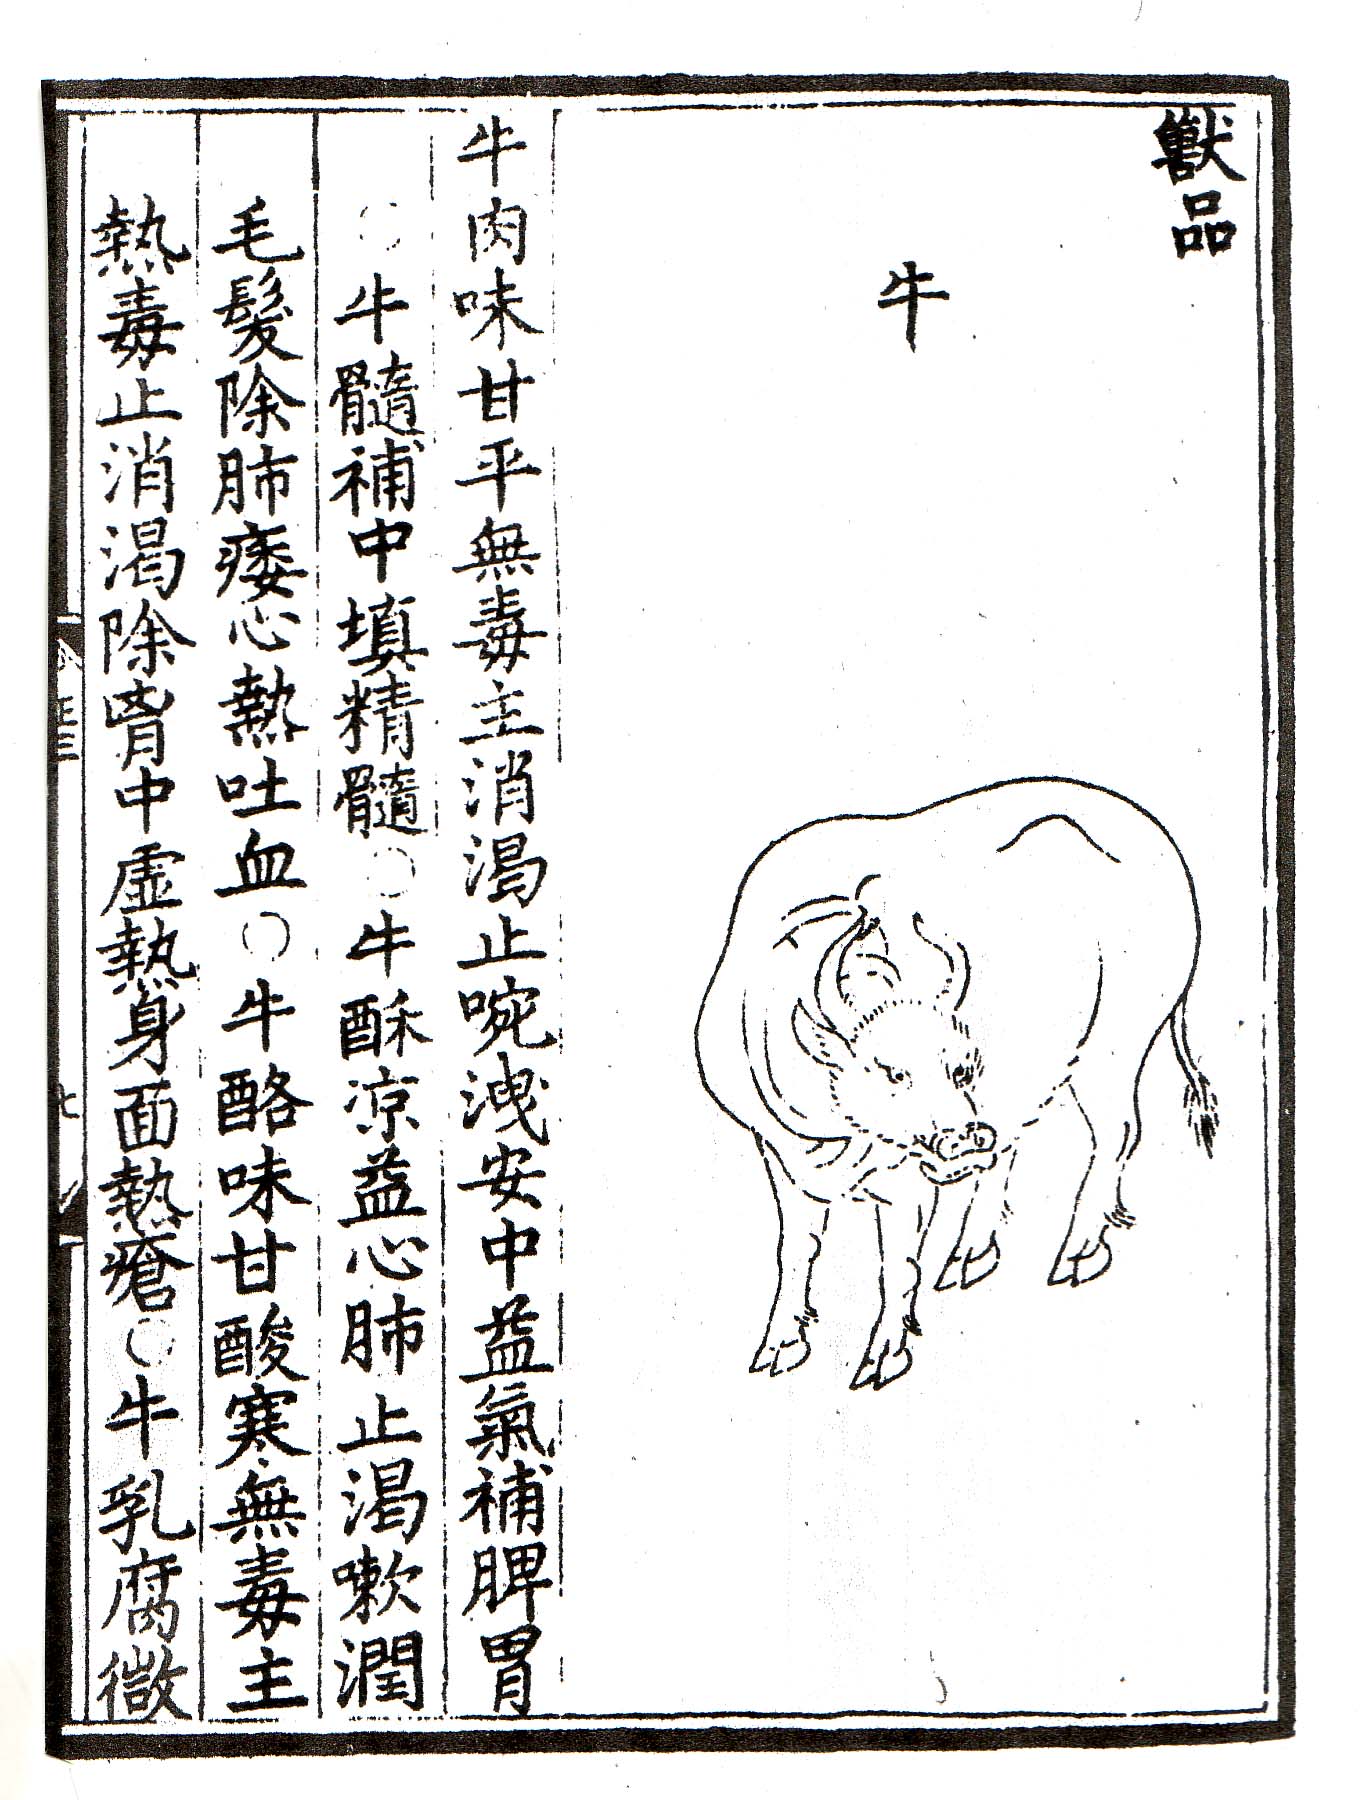 獸品
牛
牛肉味甘平無毒主消渴止啘洩安中益氣補脾胃
○牛髓補中填精髓○牛酥凉益心肺止渴嗽潤
毛髮除肺痿心熱吐血○牛酪味甘酸寒無毒主
熱毒止消渴除胷中虛熱身面熱瘡○牛乳腐微